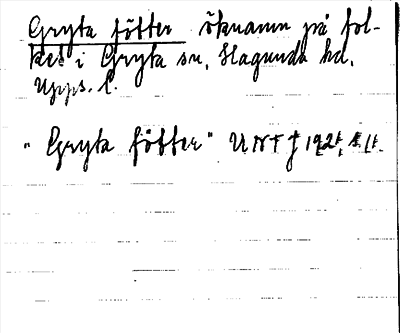 Gryta fötter öknamn på fol-
ket i Gryta sn, Hagunda hd,
Upps. l.
"Gryta fötter" UNT 192